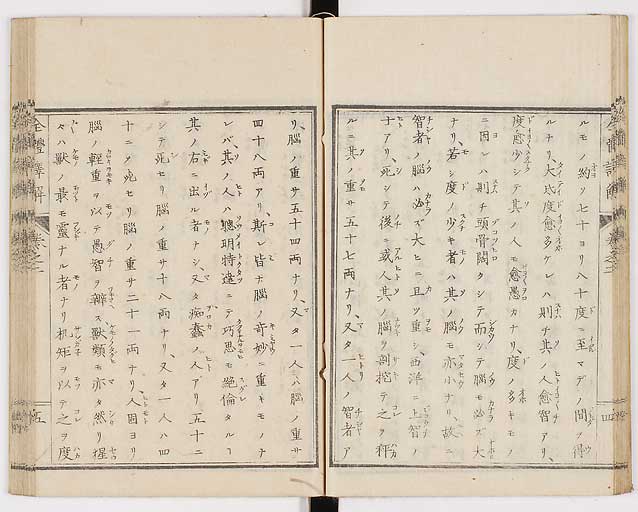 ルモノ約ソ七十ヨリ八十度ニ至マデノ間ヲ得
ルナリ、大氐度愈多ケレハ則チ其ノ人愈智アリ、
度愈少シテ其ノ人モ愈愚カナリ、度ノ多キモノ
ニ因レハ則チ頭骨闊タシテ而シテ腦モ必ズ大
ナリ、若シ度ノ少キ者ハ其ノ腦モ亦小ナリ、故ニ
智者ノ腦ハ必ズ大ヒニ且ツ重シ、西洋ニ上智ノ
士アリ、死シテ後ニ或人其ノ腦ヲ剖挖テ之ヲ秤
ルニ其ノ重サ五十七兩ナリ、又タ一人ノ智者ア
リ、腦ノ重サ五十四兩ナリ、又タ一人ハ腦ノ重サ
四十八兩アリ、斯レ皆ナ腦ノ奇妙ニ重キモノナ
レバ、其ノ人ハ聰明特達ニテ巧思モ絶倫タル
其ノ右ニ出ル者ナシ、又タ痴蠢ノ人アリ五十ニ
シテ死セリ腦ノ重サ十八兩ナリ、又タ一人ハ四
十ニシテ死セリ腦ノ重サ二十一兩ナリ人因ヨリ
腦ノ輕重ヲ以テ愚智ヲ辨ス獸類モ亦タ然リ猩
々ハ獸ノ最モ靈ナル者ナリ机矩ヲ以テ之ヲ度
全體譯解
卷之二
四
五